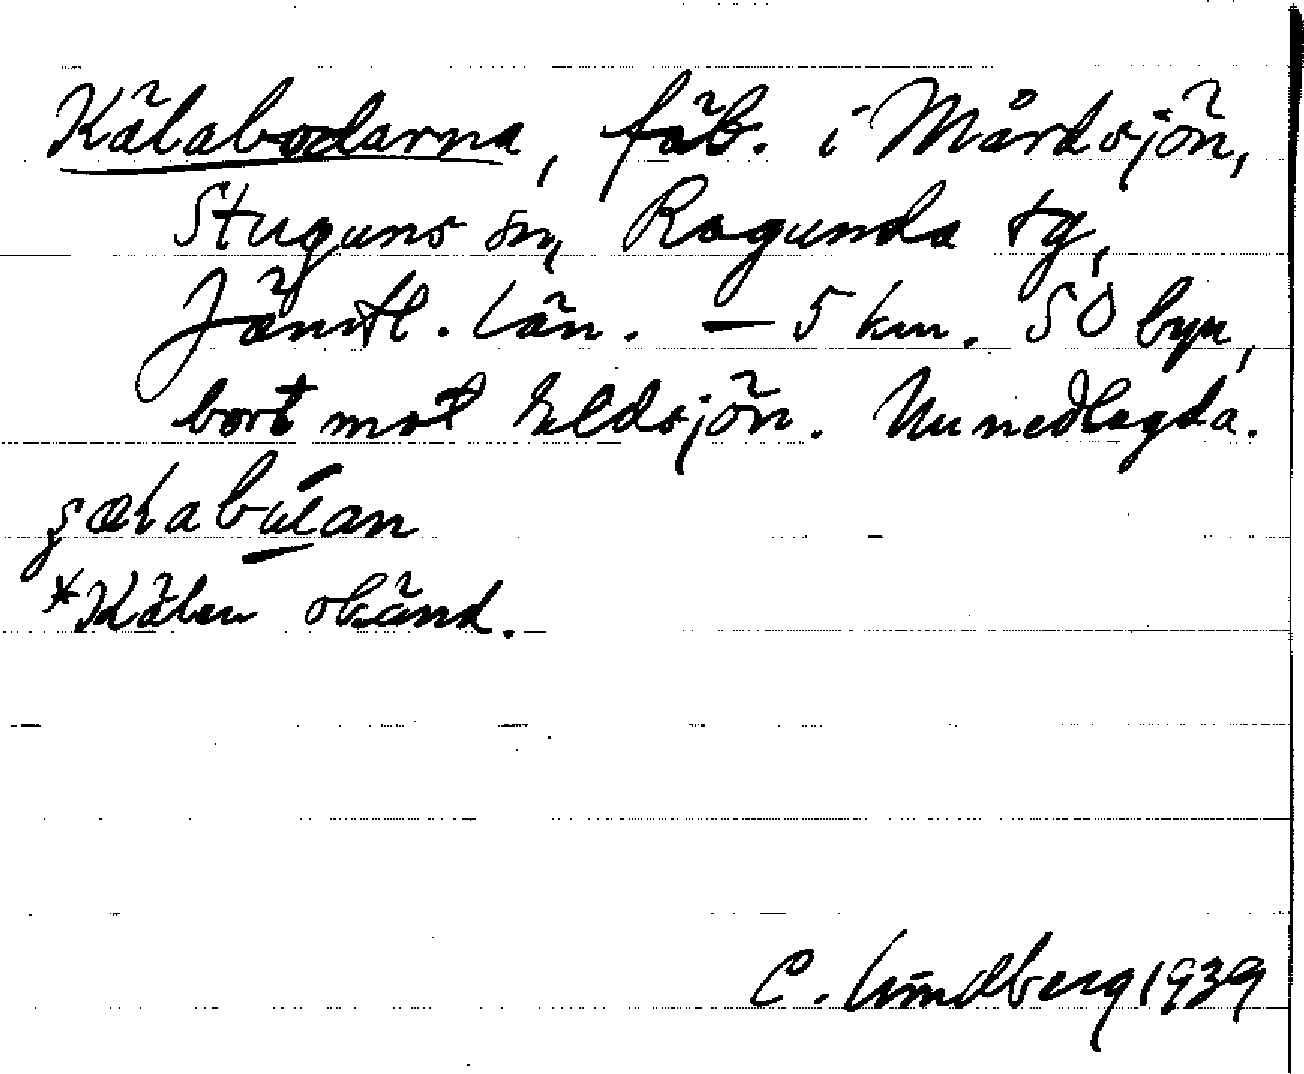 Kälabodarna, fäb. i Mårdsjön,
Stuguns sn, Ragunda tg,
Jämtl. län. — 5 km. SO byn,
bort mot Eldsjön. Nu nedlagda.
*Kälen okänd.
C. Lindberg 1939